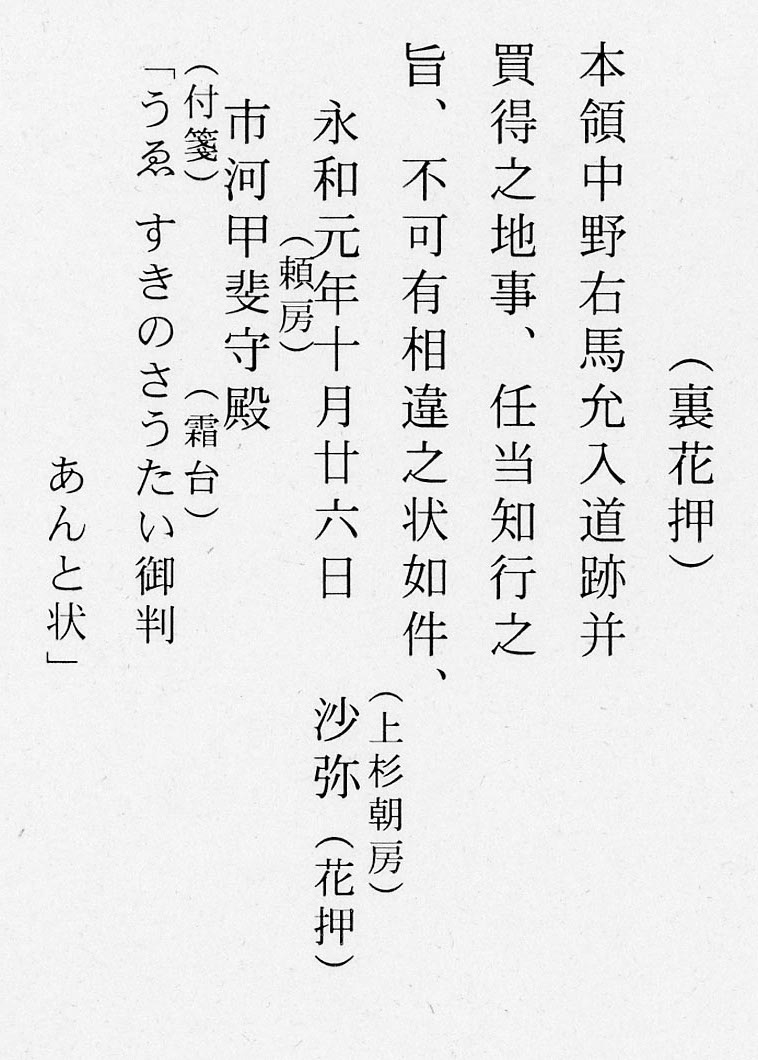 （裏花押）
本領中野右馬允入道跡并
買得之地事、任当知行之
旨、不可有相違之状如件、
（上杉朝房）
永和元年十月廿六日　沙弥（花押）
（頼房）
市河甲斐守殿
（付箋）（霜台）
「うゑすきのさうたい御判
あんと状」